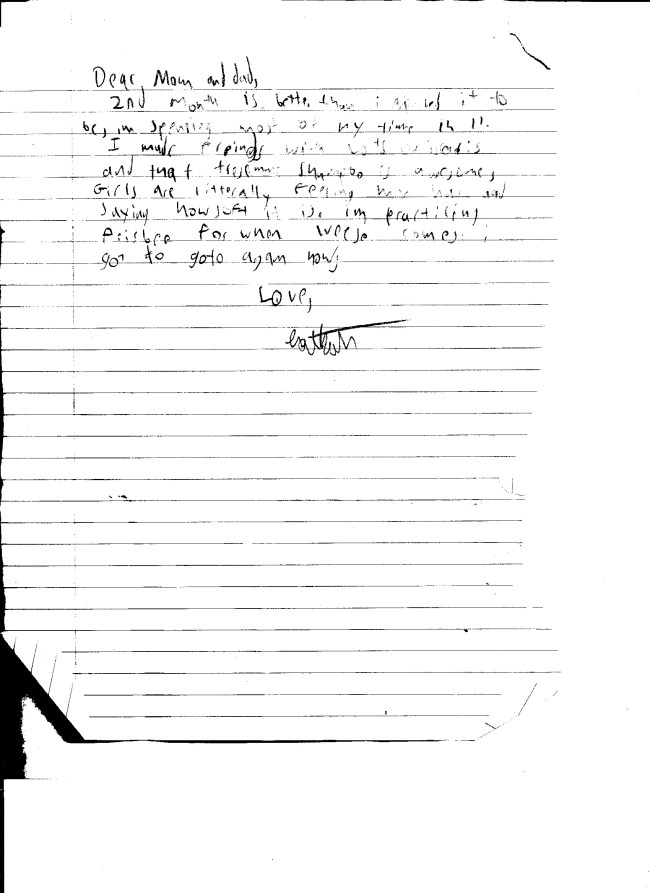 Dear, Mom and dad,
2nd month is better than i it to
be, im spending most of my time in it.
I made with
and that tresemme is awesome,
Girls are litterally feeling my hair and
saying how soft it is. im practicing
frisbee for when comes. i
got to goto again now;
Love,